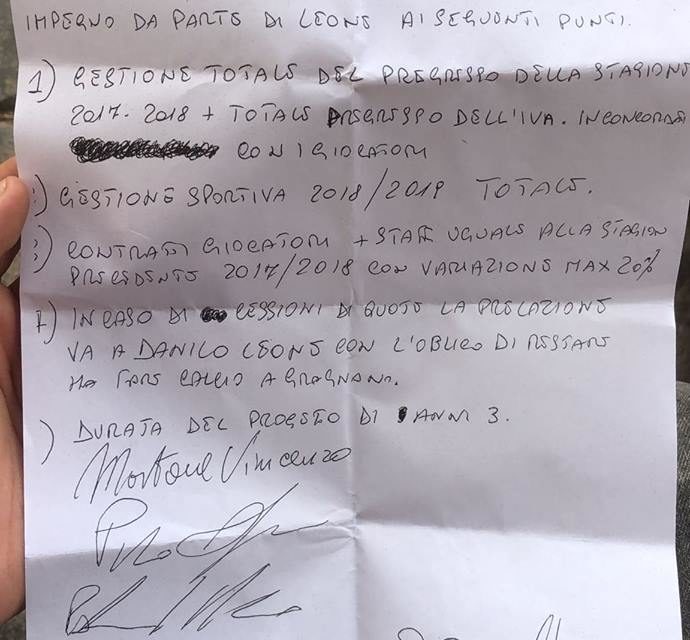 IMPEGNO DA PARTE DI LEONE AI SEGUENTI PUNTI.
1) GESTIONE TOTALE DEL PREGRESSO DELLA STAGIONE
2017-2018 + TOTALE PREGRESSO DELL'IVA. IN CONCORDA
CON I GIOCATORI
) GESTIONE SPORTIVA 2018/2019 TOTALE.
3) CONTRATTI GIOCATORI + STAFF UGUALE ALLA STAGION
PRECEDENTE 2017/2018 CON VARIAZIONE MAX 20%
) IN CASO DI CESSIONI DI QUOTE LA PRELAZIONE
VA A DANILO LEONE CON L'OBLIGO DI RESTARE
HA FARE CALCIO A GRAGNANO.
) DURATA DEL PROGETO DI ANNI 3.
Vincenzo